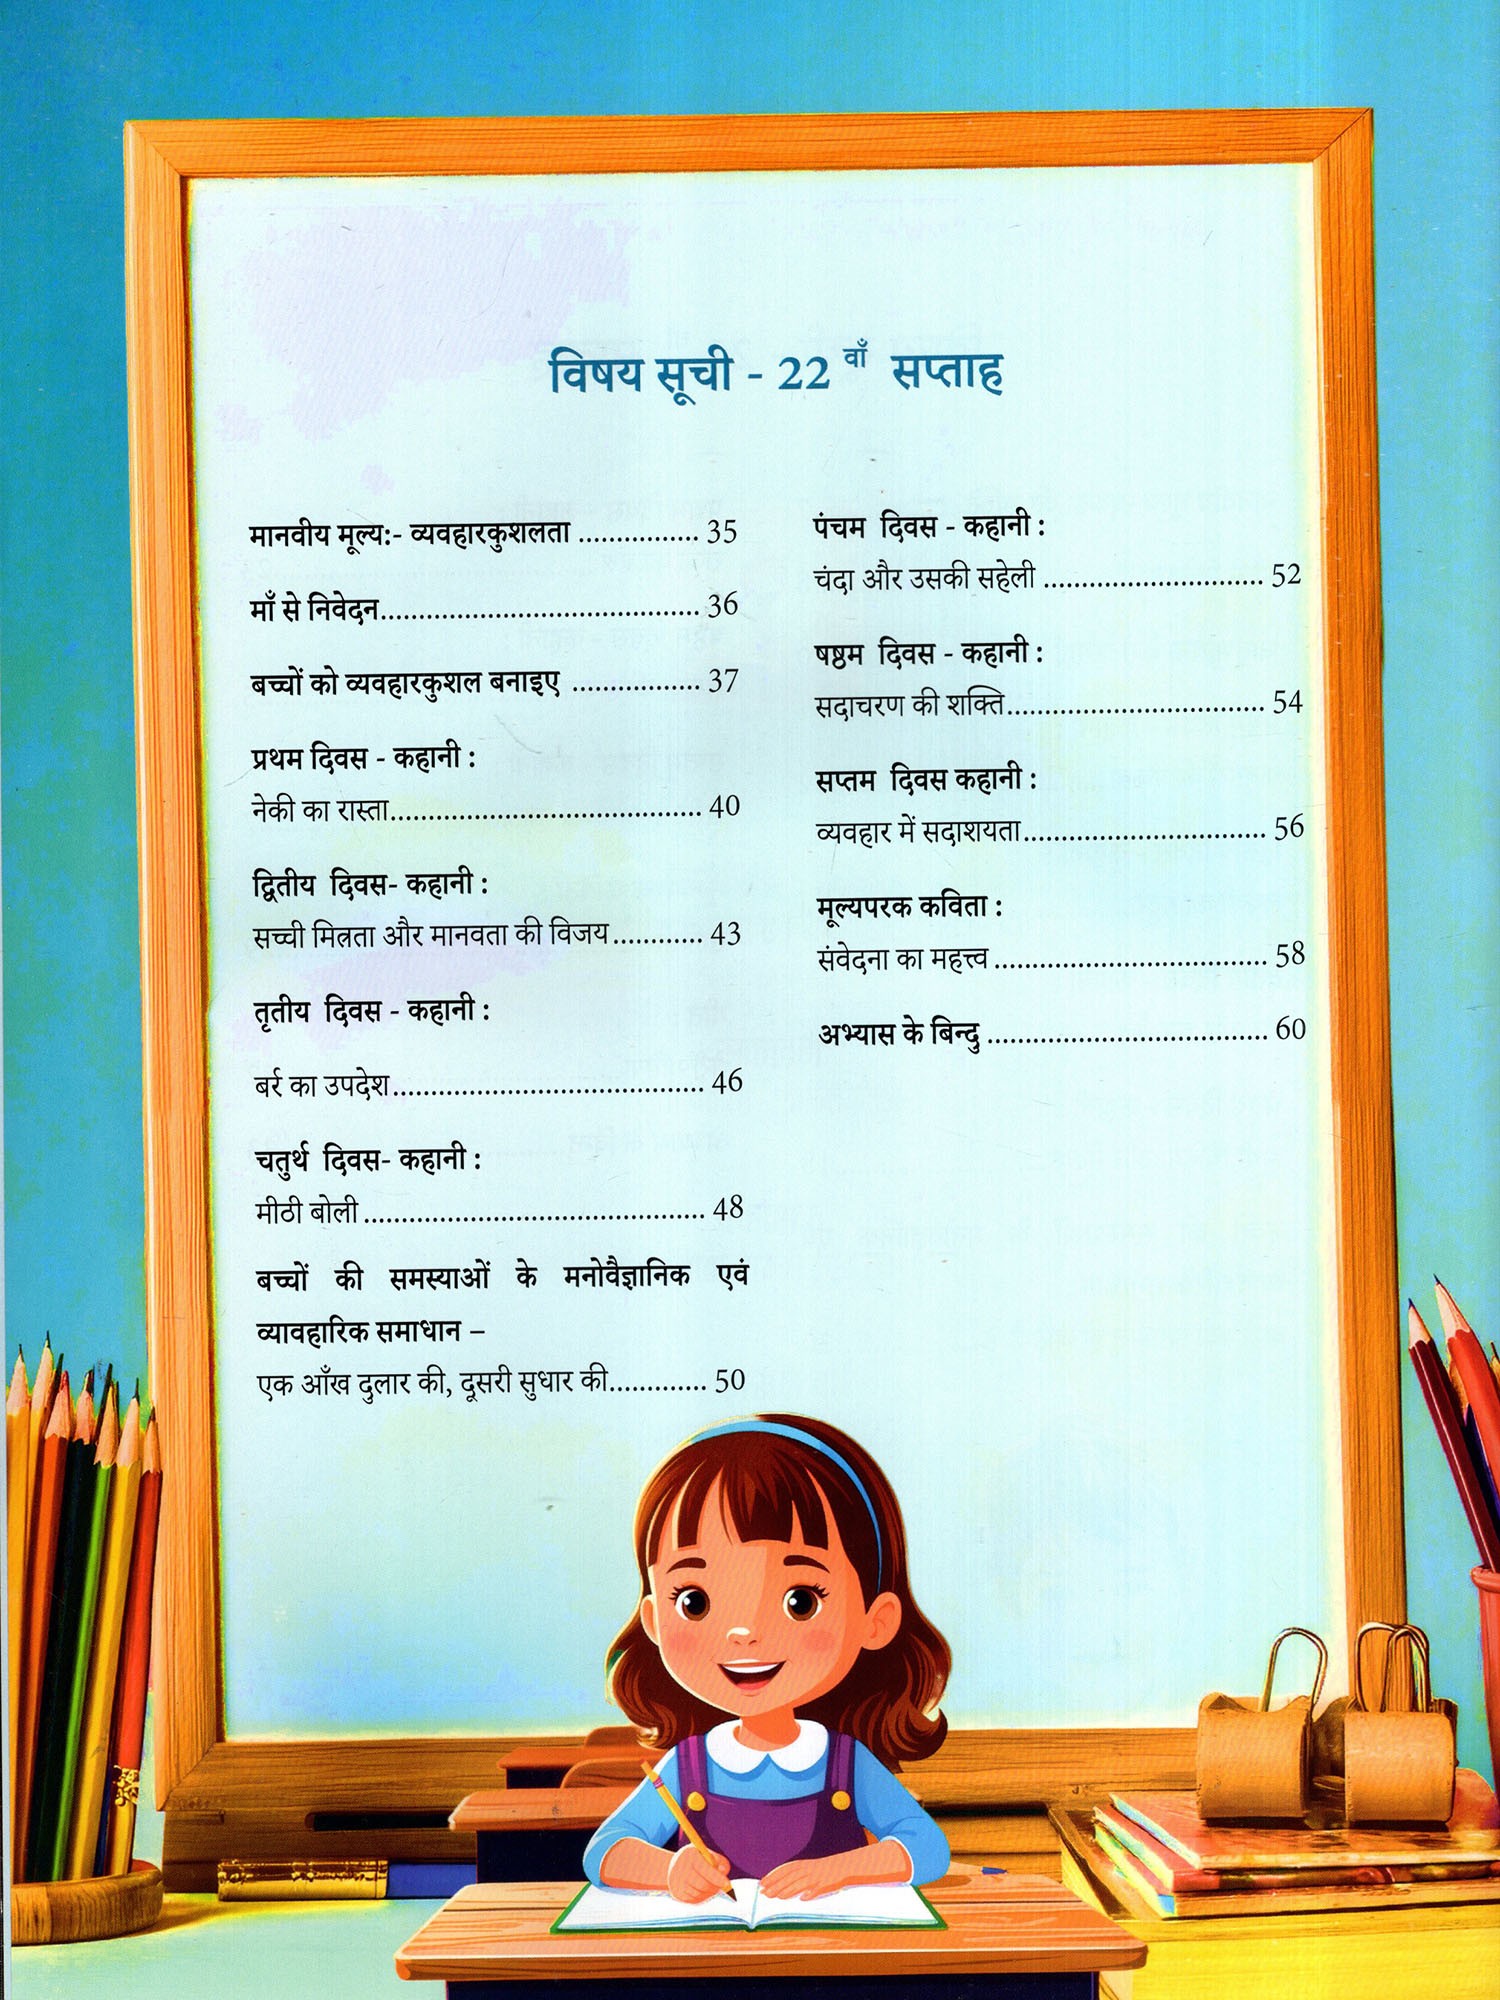 विषय सूची - 22 वाँ सप्ताह
मानवीय मूल्य:- व्यवहारकुशलता ................ 35
माँ से निवेदन.......................................... 36
बच्चों को व्यवहारकुशल बनाइए ................. 37
प्रथम दिवस - कहानी :
नेकी का रास्ता......................................... 40
द्वितीय दिवस- कहानी :
सच्ची मित्रता और मानवता की विजय............ 43
तृतीय दिवस - कहानी :
बर्र का उपदेश......................................... 46
चतुर्थ दिवस- कहानी :
मीठी बोली ............................................. 48
बच्चों की समस्याओं के मनोवैज्ञानिक एवं
व्यावहारिक समाधान –
एक आँख दुलार की, दूसरी सुधार की............. 50
पंचम दिवस - कहानी :
चंदा और उसकी सहेली ............................. 52
षष्ठम दिवस - कहानी :
सदाचरण की शक्ति.................................. 54
सप्तम दिवस कहानी :
व्यवहार में सदाशयता................................ 56
मूल्यपरक कविता :
संवेदना का महत्त्व .................................... 58
अभ्यास के बिन्दु ..................................... 60